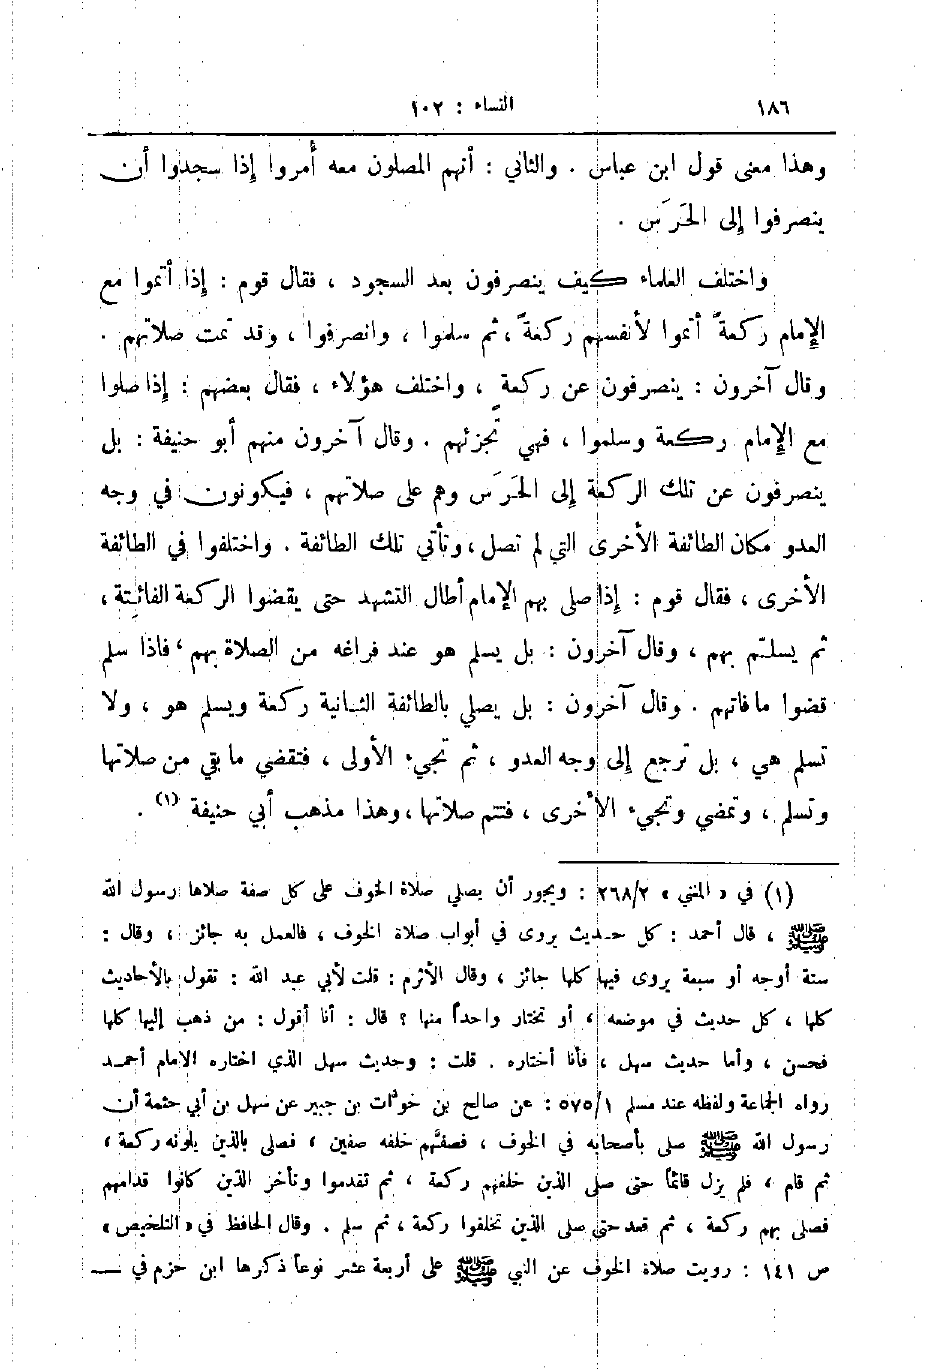 ١٨٦ النساء : ١٠٢
وهذا معنى قول ابن عباس . والثاني : أنهم المصلون معه أُمروا إِذا سجدوا أن
ينصرفوا إِلى الحَرَس .
واختلف العلماء كيف ينصرفون بعد السجود ، فقال قوم : إِذا أتموا مع
الإِمام ركعةً أتموا لأنفسهم ركعةً ، ثم سلموا ، وانصرفوا ، وقد تمت صلاتهم .
وقال آخرون : ينصرفون عن ركعة ، واختلف هؤلاء ، فقال بعضهم : إِذا صلوا
مع الإِمام ركعة وسلموا ، فهي تُجزئهم . وقال آخرون منهم أبو حنيفة : بل
ينصرفون عن تلك الركعة إِلى الحَرَس وهم على صلاتهم ، فيكونون في وجه
العدو مكان الطائفة الأخرى التي لم تصل ، وتأتي تلك الطائفة . واختلفوا في الطائفة
الأخرى ، فقال قوم : إِذا صلى بهم الإِمام أطال التشهد حتى يقضوا الركعة الفائِتة ،
ثم يسلـّم بهم ، وقال آخرون : بل يسلم هو عند فراغه من الصلاة بهم ، فاذا سلم
قضوا ما فاتهم . وقال آخرون : بل يصلي بالطائفة الثـانية ركعة ويسلم هو ، ولا
تسلم هي ، بل ترجع إِلى وجه العدو ، ثم تجيء الأولى ، فتقضي ما بقي من صلاتها
وتسلم ، وتمضي وتجيء الأخرى ، فتتم صلاتها ، وهذا مذهب أبي حنيفة (١) .
(١) في « المغني » ٢٦٨/٢ : ويجوز أن يصلي صلاة الخوف على كل صفة صلاها رسول الله
ﷺ ، قال أحمد : كل حـديث يروى في أبواب صلاة الخوف ، فالعمل به جائز ، وقال :
ستة أوجه أو سبعة يروى فيها كلها جائز ، وقال الأثرم : قلت لأبي عبد الله : تقول بالأحاديث
كلها ، كل حديث في موضعه ، أو تختار واحداً منها ؟ قال : أنا أقول : من ذهب إليها كلها
فحسن ، وأما حديث سهل ، فأنا أختاره . قلت : وحديث سهل الذي اختاره الإمام أحمـد
رواه الجماعة ولفظه عند مسلم ٥٧٥/١ : عن صالح بن خوّات بن جبير عن سهل بن أبي حثمة أن
رسول الله ﷺ صلى بأصحابه في الخوف ، فصفَّهم خلفه صفين ، فصلى بالذين يلونه ركعة ،
ثم قام ، فلم يزل قائماً حتى صلى الذين خلفهم ركعة ، ثم تقدموا وتأخر الذين كانوا قدامهم
فصلى بهم ركعة ، ثم قعد حتى صلى الذين تخلفوا ركعة ، ثم سلم . وقال الحافظ في « التلخيص »
ص ١٤١ : رويت صلاة الخوف عن النبي ﷺ على أربعة عشر نوعاً ذكرها ابن حزم في —